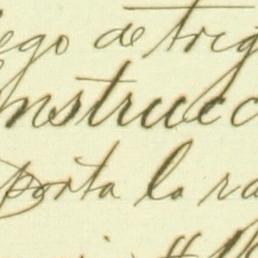 ego de trig
nstrucc
porta la ra